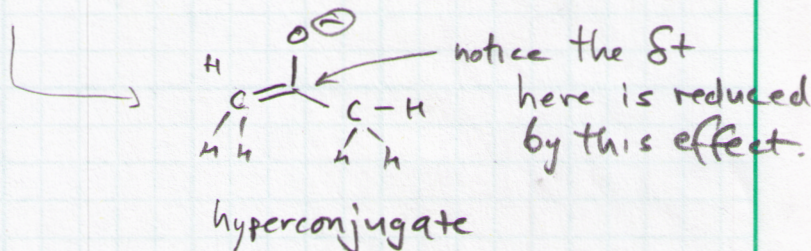 O ⊖
H
C
C - H
H H
H H
notice the δ+
here is reduced
by this effect.
hyperconjugate